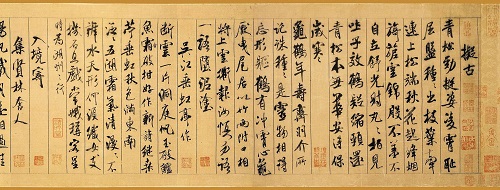 擬古
青松勁挺姿凌霄恥
屈盤種種出枝葉牽
連上松端秋花起絳烟
旖旎雲錦殷不羞不
自立舒光射丸丸柏見
吐子效鶴疑縮頸還
青松本無華安得保
歲寒
龜鶴年壽齊羽介所
託殊種種是靈物相得
忘形軀鶴有沖霄心龜
厭曳尾居以竹兩附口相
將上雲衢報汝慎勿語
一語墮泥塗
吳江垂虹亭作
斷雲一片洞庭帆玉破鱸
魚金破柑好作新詩繼桑
苧垂虹秋色滿東南
泛泛五湖霜氣清漫漫不
辨水天形何須織女支
機石且戲常娥稱客星
時為湖州之行
入境寄
集賢林舍人
揚帆載月遠相過